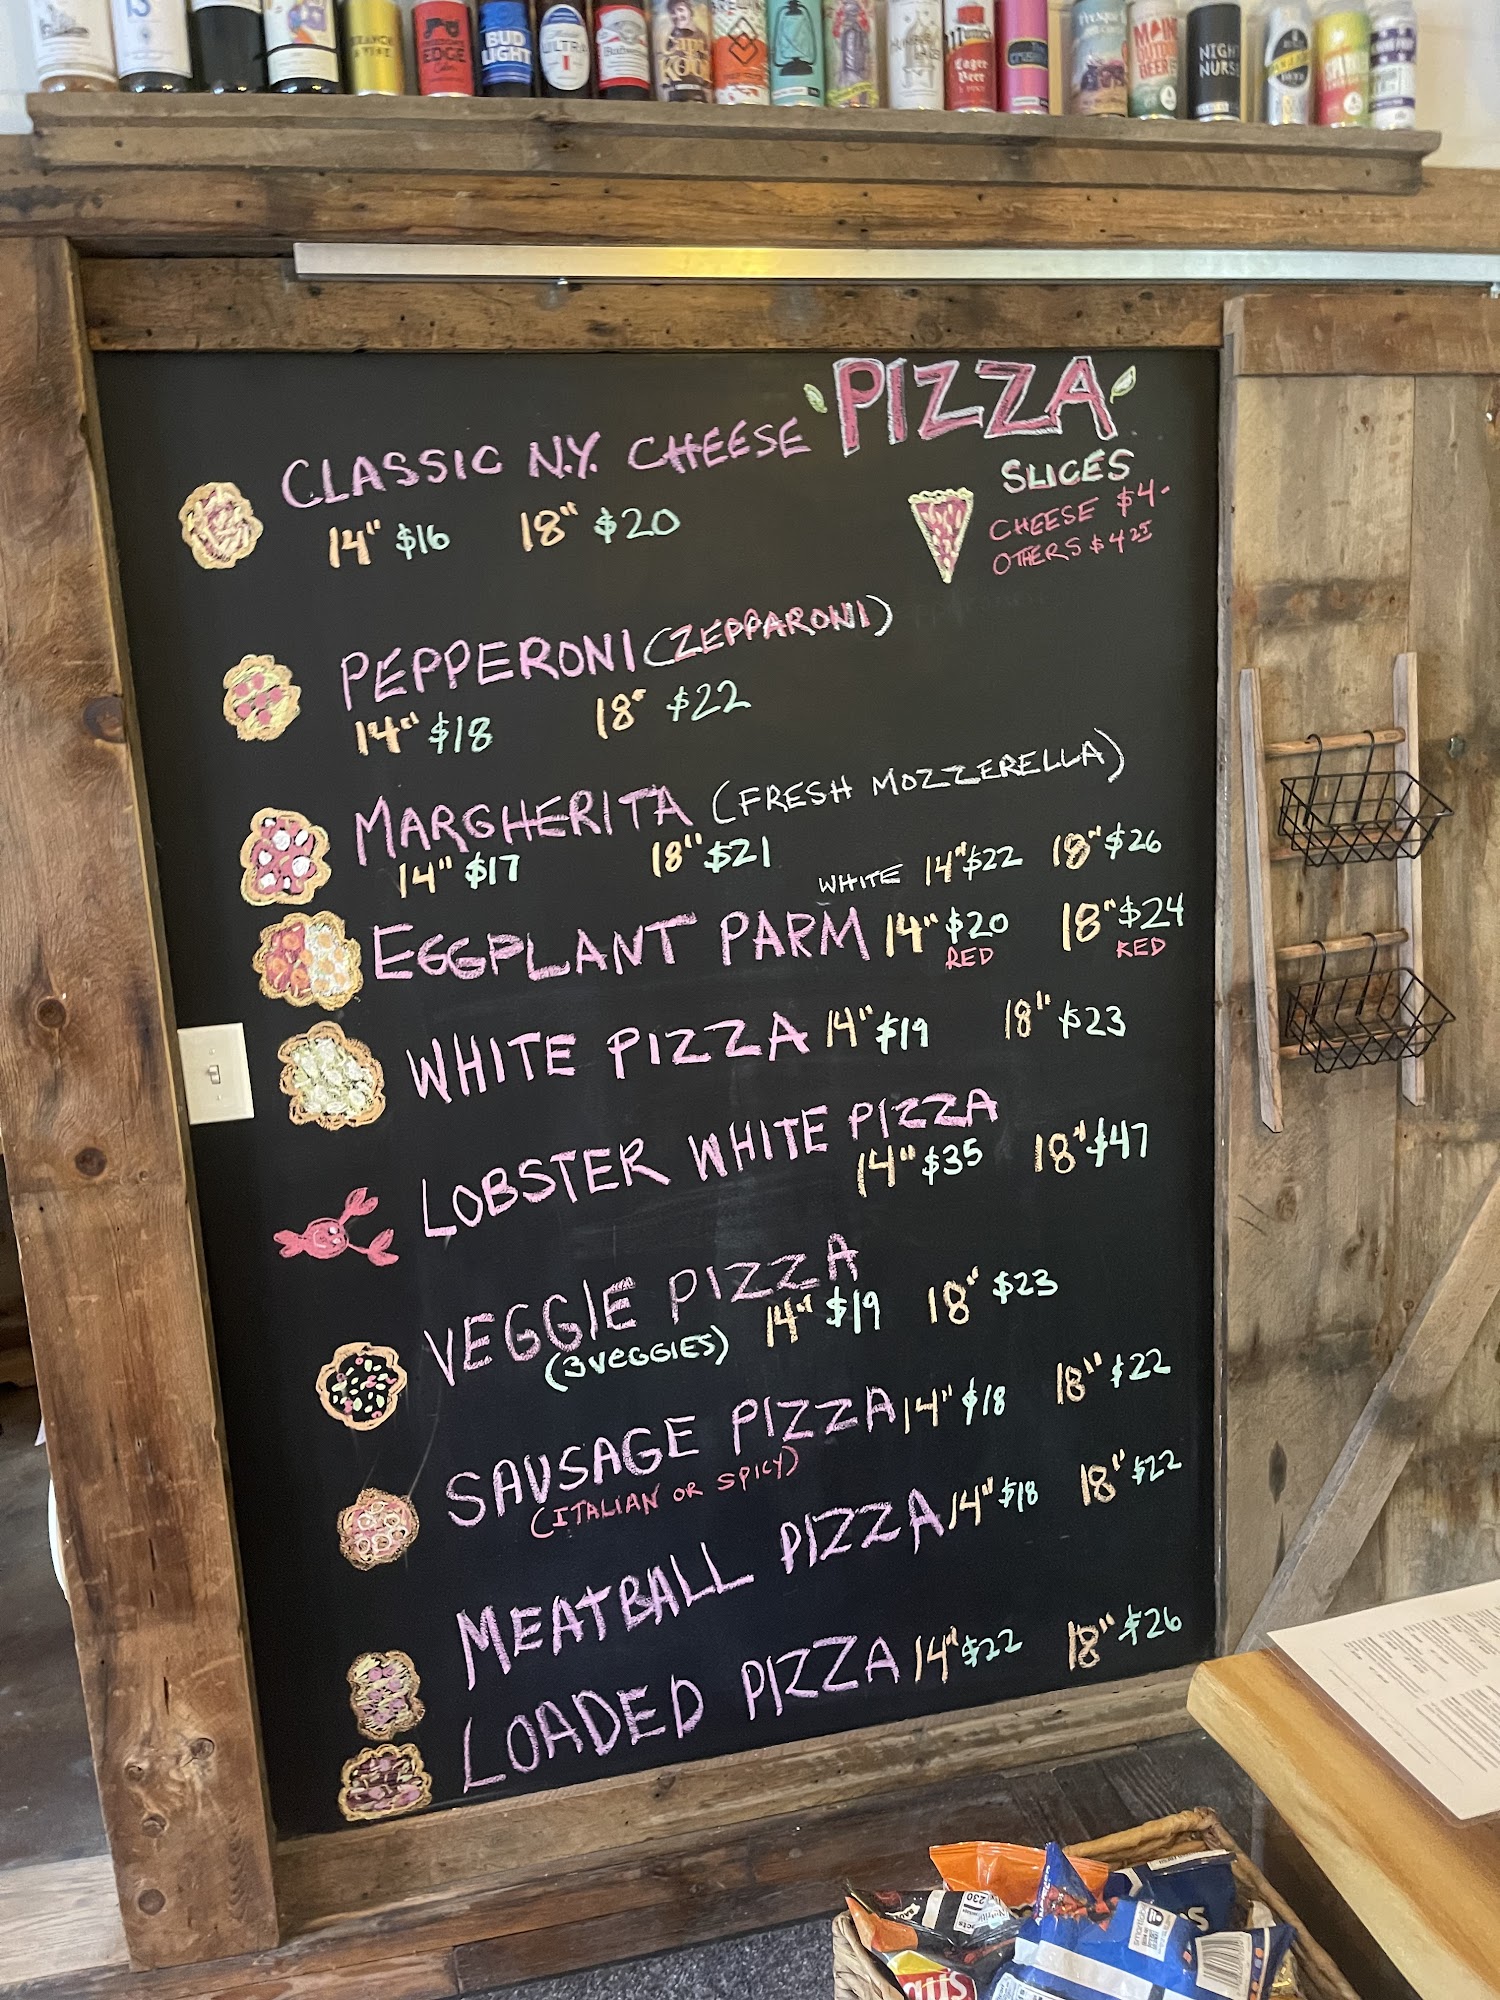 BUD LIGHT
ULTRA
Budweiser
EDGE
Lager Beer
NIGHT NURSE
PIZZA
CLASSIC N.Y. CHEESE
14" $16 18" $20
SLICES
CHEESE $4.
OTHERS $4 25
PEPPERONI (ZEPPARONI)
14" $18 18" $22
MARGHERITA (FRESH MOZZERELLA)
14" $17 18" $21
WHITE 14" $22 18" $26
EGGPLANT PARM 14" $20 18" $24
RED RED
WHITE PIZZA 14" $19 18" $23
LOBSTER WHITE PIZZA
14" $35 18" $47
VEGGIE PIZZA
(3 VEGGIES) 14" $19 18" $23
SAUSAGE PIZZA 14" $18 18" $22
(ITALIAN OR SPICY)
MEATBALL PIZZA 14" $18 18" $22
LOADED PIZZA 14" $22 18" $26
230